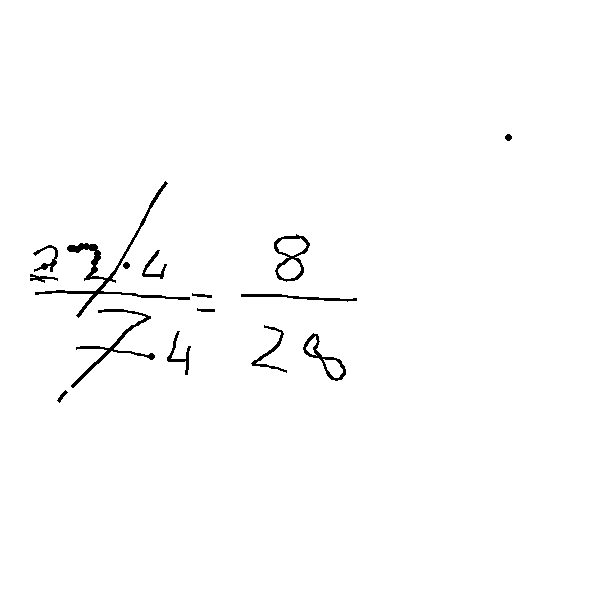 22 · 4 / 7 · 4 = 8 / 28